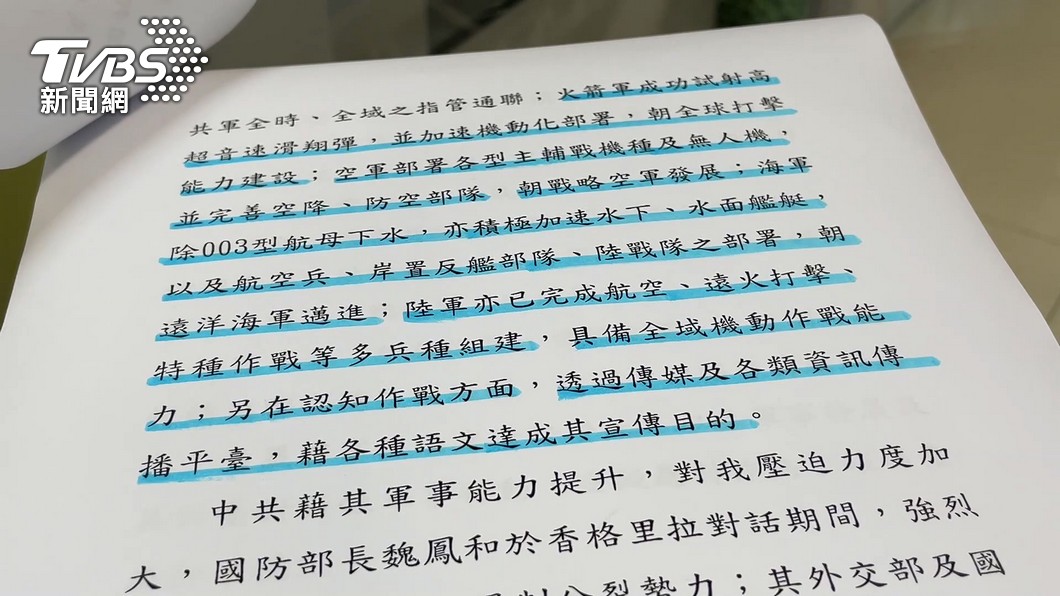 TVBS
新聞網
共軍全時、全域之指管通聯；火箭軍成功試射高
超音速滑翔彈，並加速機動化部署，朝全球打擊
能力建設；空軍部署各型主輔戰機種及無人機，
並完善空降、防空部隊，朝戰略空軍發展；海軍
除003型航母下水，亦積極加速水下、水面艦艇，
以及航空兵、岸置反艦部隊、陸戰隊之部署，朝
遠洋海軍邁進；陸軍亦已完成航空、遠火打擊、
特種作戰等多兵種組建，具備全域機動作戰能
力；另在認知作戰方面，透過傳媒及各類資訊傳
播平臺，藉各種語文達成其宣傳目的。
中共藉其軍事能力提升，對我壓迫力度加
大，國防部長魏鳳和於香格里拉對話期間，強烈
分裂勢力；其外交部及國